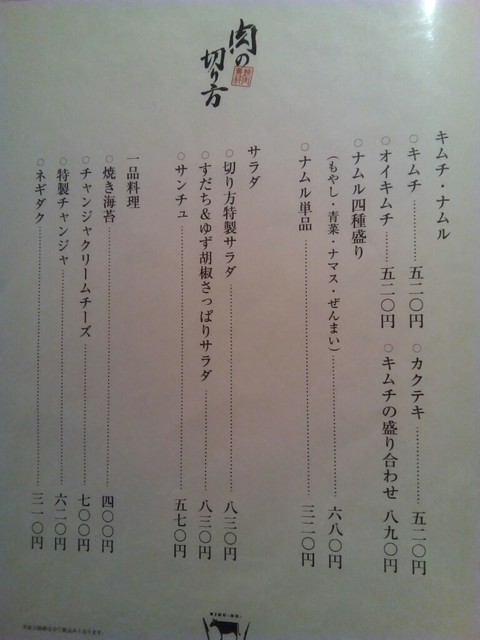 肉の
切り方
キムチ・ナムル
○キムチ 五二〇円 ○カクテキ 五二〇円
○オイキムチ 五二〇円 ○キムチの盛り合わせ 八九〇円
○ナムル四種盛り
（もやし・青菜・ナマス・ぜんまい） 六八〇円
○ナムル単品 三二〇円
サラダ
○切り方特製サラダ 八三〇円
○すだち&ゆず胡椒さっぱりサラダ 八三〇円
○サンチュ 五七〇円
一品料理
○焼き海苔 四〇〇円
○チャンジャクリームチーズ 七〇〇円
○特製チャンジャ 六二〇円
○ネギダク 三一〇円